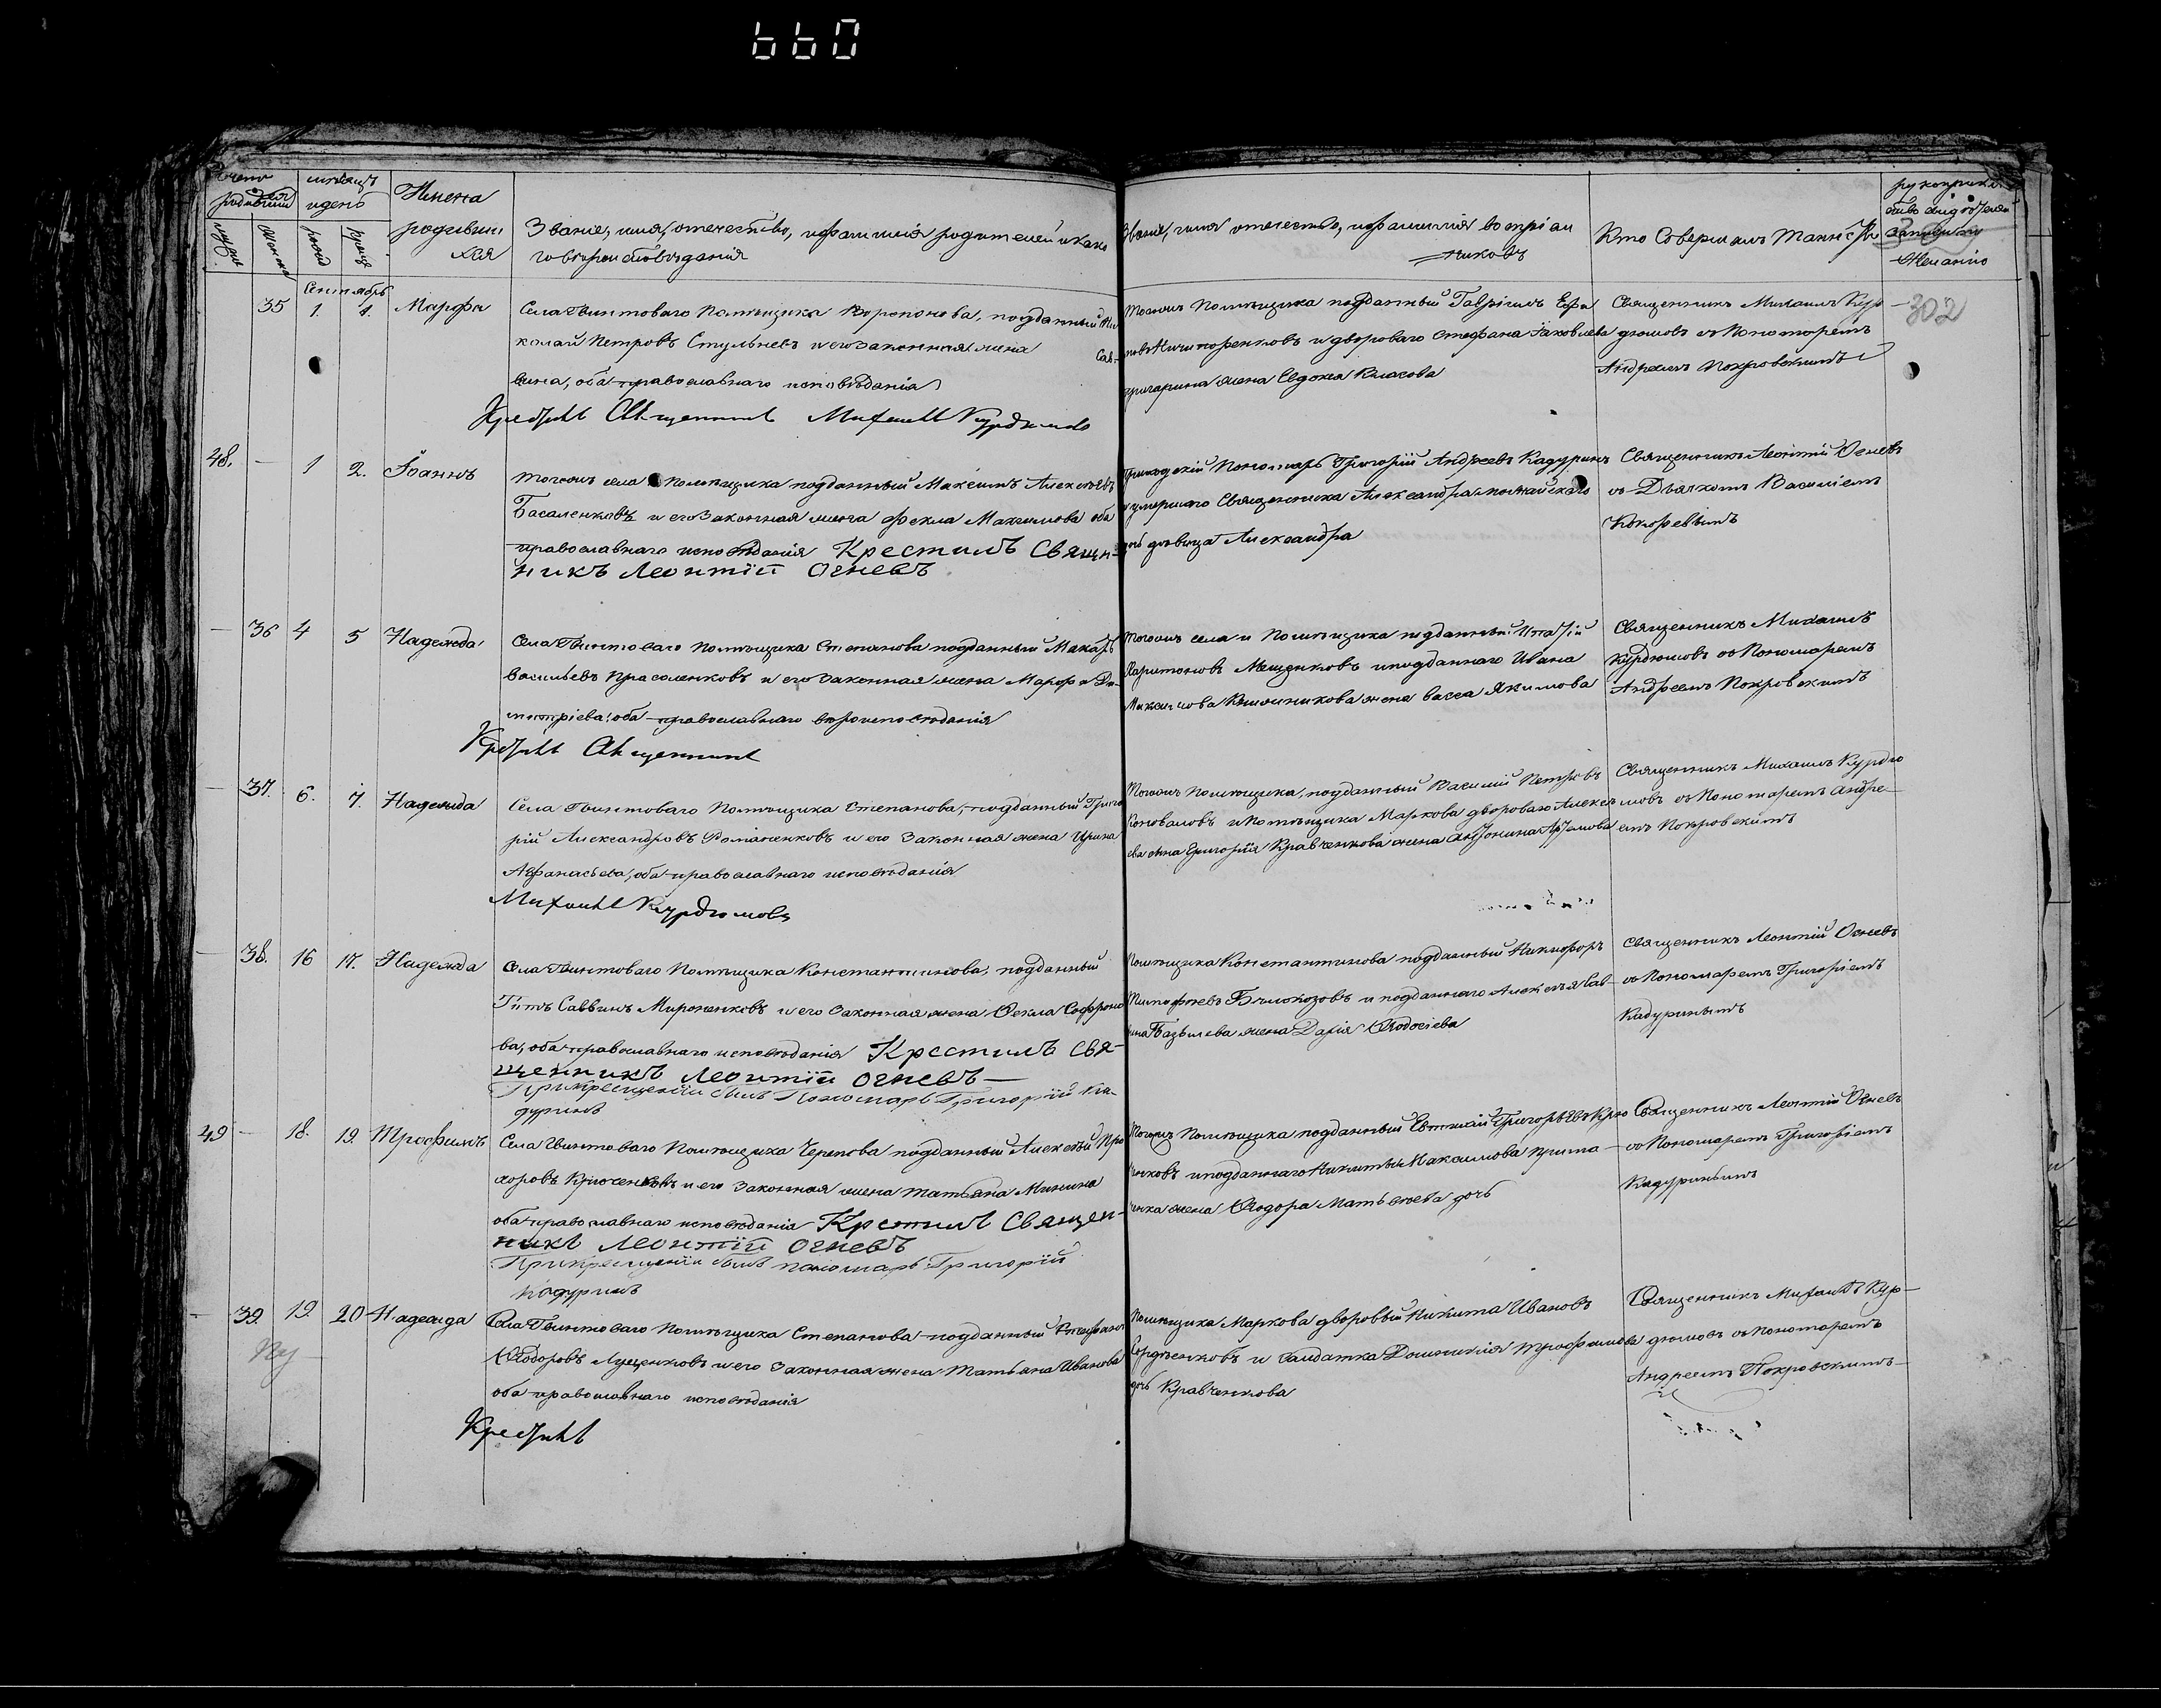 660
счетъ
родившихся
мѣсяцъ
и день
Имена
родивши
хся
Званіе, имя, отечество, и фамилія родителей и како
го вѣроисповѣданія
Званіе, имя отечество, и фамиллія воспріем
никовъ
Кто Совершалъ Таинство
302
Сентябрь
35 1. 1. Марфа
Села Гвинтоваго Помѣщика Воропонова, подданный Ни
колай Петровъ Стульневъ и его законная жена Сав-
вина, оба православнаго исповѣданія
Крестилъ Священникъ Михаилъ Курдюмовъ
Тогожъ Помѣщика подданный Гавріилъ Ефи
мовъ Ничипоренковъ и двороваго Стефана Іаковлева
жена Евдокія Власова
Священникъ Михаилъ Кур
дюмовъ съ Пономаремъ
Андреемъ Покровскимъ
48. 1 2. Іоаннъ
тогожъ села помѣщика подданный Максимъ Алексѣевъ
Басаленковъ и его законная жена Фекла Максимова оба
православнаго исповѣданія Крестилъ Священ-
никъ Леонтій Огневъ
Приходскій Пономарь Григорій Андреевъ Кадуринъ
умершаго Священника Александра
дочь дѣвица Александра
Священникъ Леонтій Огневъ
съ Дьячкомъ Василіемъ
36 4 5 Надежда
Села Гвинтоваго помѣщика Степанова подданный Макаръ
Васильевъ Прасоленковъ и его законная жена Марфа Ди-
митріева, оба православнаго вѣроисповѣданія
Крестилъ Священникъ
Тогожъ села и Помѣщика подданный Ипатій
Харитоновъ Мащенковъ и подданнаго Ивана
Максимова жена Васса Якимова
Священникъ Михаилъ
Курдюмовъ съ Пономаремъ
Андреемъ Покровскимъ
37. 6. 7. Надежда
Села Гвинтоваго Помѣщика Степанова, подданный Григо
рій Александровъ Романенковъ и его законная жена Ирина
Афанасьева, оба православнаго исповѣданія
Михаилъ Курдюмовъ
Тогожъ Помѣщика, подданный Василій Петровъ
Коноваловъ и Помѣщика Маркова двороваго Алексѣ
ева сына Григорія Кравченкова жена Антонина Артамова
Священникъ Михаилъ Курдю
мовъ съ Пономаремъ Андре-
емъ Покровскимъ
38. 16 17. Надежда
Села Гвинтоваго Помѣщика Константинова, подданный
Титъ Саввинъ Мироненковъ и его законная жена Фекла Софроно
ва, оба православнаго исповѣданія Крестилъ Свя-
щенникъ Леонтій Огневъ
При крещеніи былъ Пономарь Григорій Ка-
дуринъ
Помѣщика Константинова подданный Никифоръ
Тимофѣевъ Бѣлокозовъ и подданнаго Алексѣя Сав-
жена Дарія Ѳеодосіева
Священникъ Леонтій Огневъ
съ Пономаремъ Григоріемъ
Кадуринымъ
49 18. 19. Трофимъ
Села Гвинтоваго Помѣщика Черепова подданный Алексѣй Про
хоровъ Крюченковъ и его законная жена Татьяна Минина
оба православнаго исповѣданія Крестилъ Священ-
никъ Леонтій Огневъ
При крещеніи былъ пономарь Григорій
Кадуринъ
Тогожъ Помѣщика подданный Евтихій Григорьевъ Крю
ченковъ и подданнаго Никиты Максимова
жена Ѳеодора Матвѣева дочь
Священникъ Леонтій Огневъ
съ Пономаремъ Григоріемъ
Кадуринымъ
39. 19. 20 Надежда
Села Гвинтоваго Помѣщика Степанова подданный Стефанъ
Ѳеодоровъ Луценковъ и его законная жена Татьяна Иванова
оба православнаго исповѣданія
Крестилъ
Помѣщика Маркова дворовый Никита Ивановъ
Сердѣенковъ и салдатка Домникія Трофимова
дочь Кравченкова
Священникъ Михаилъ Кур-
дюмовъ съ Пономаремъ
Андреемъ Покровскимъ